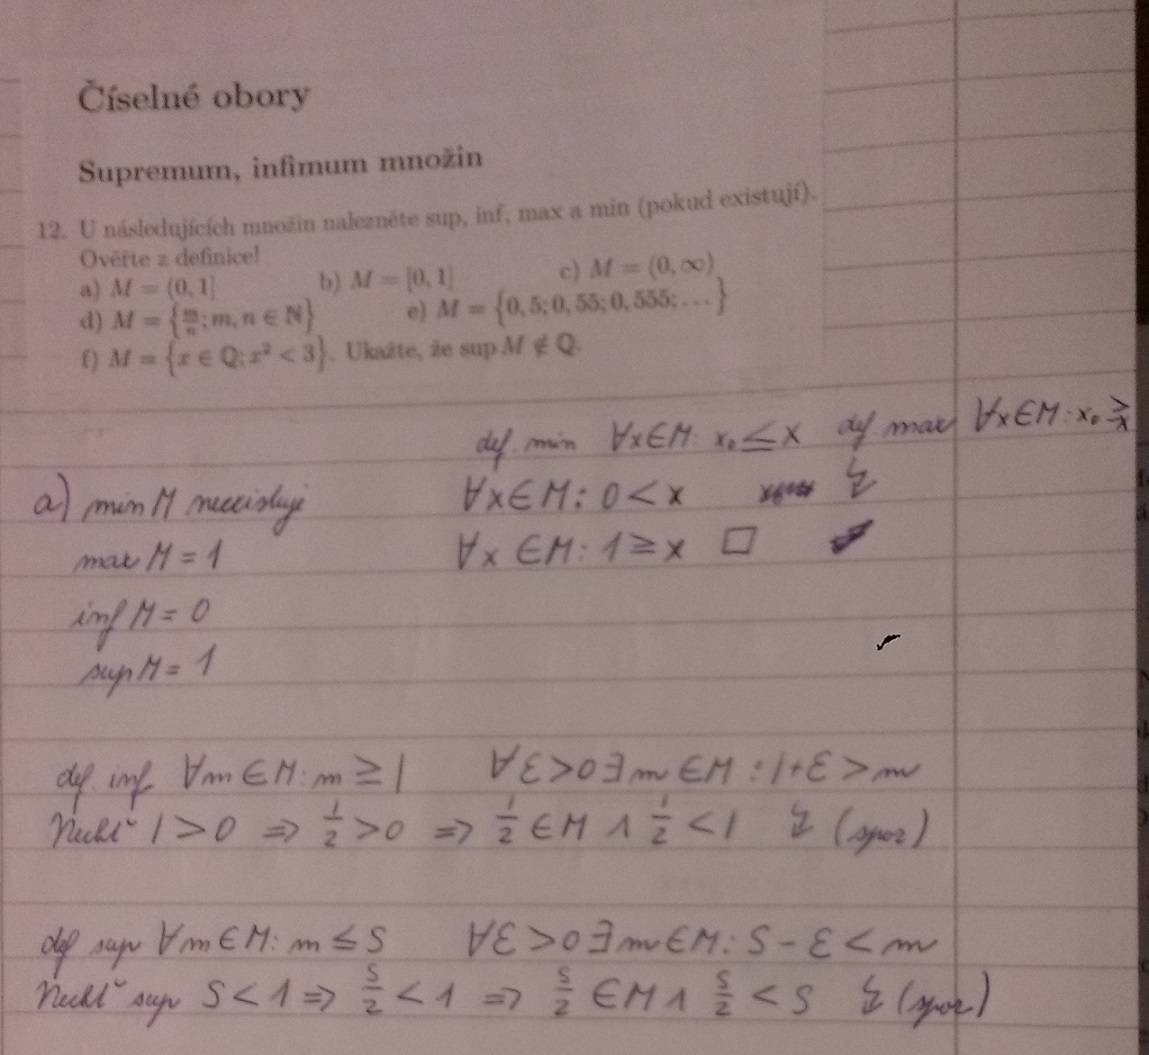 Číselné obory
Supremum, infimum množin
12. U následujících množin nalezněte sup, inf, max a min (pokud existují).
Ověřte z definice!
a) M = (0, 1] b) M = [0, 1] c) M = (0, ∞)
d) M = {m/n; m, n ∈ ℕ} e) M = {0, 5; 0, 55; 0, 555; . . . }
f) M = {x ∈ ℚ; x² < 3}. Ukažte, že sup M ∉ ℚ.
def. min ∀x∈M: x₀ ≤ x def. max ∀x∈M: x₀ ≥ x
a) min M neexistuje ∀x∈M: 0 < x ↯
max M = 1 ∀x∈M: 1 ≥ x □
inf M = 0
sup M = 1
def. inf ∀m∈M: m ≥ l ∀ε>0 ∃m∈M: l+ε > m
Nechť l > 0 ⇒ l/2 > 0 ⇒ l/2 ∈ M ∧ l/2 < l ↯ (spor)
def sup ∀m∈M: m ≤ S ∀ε>0 ∃m∈M: S - ε < m
Nechť sup S < 1 ⇒ S/2 < 1 ⇒ S/2 ∈ M ∧ S/2 < S ↯ (spor)